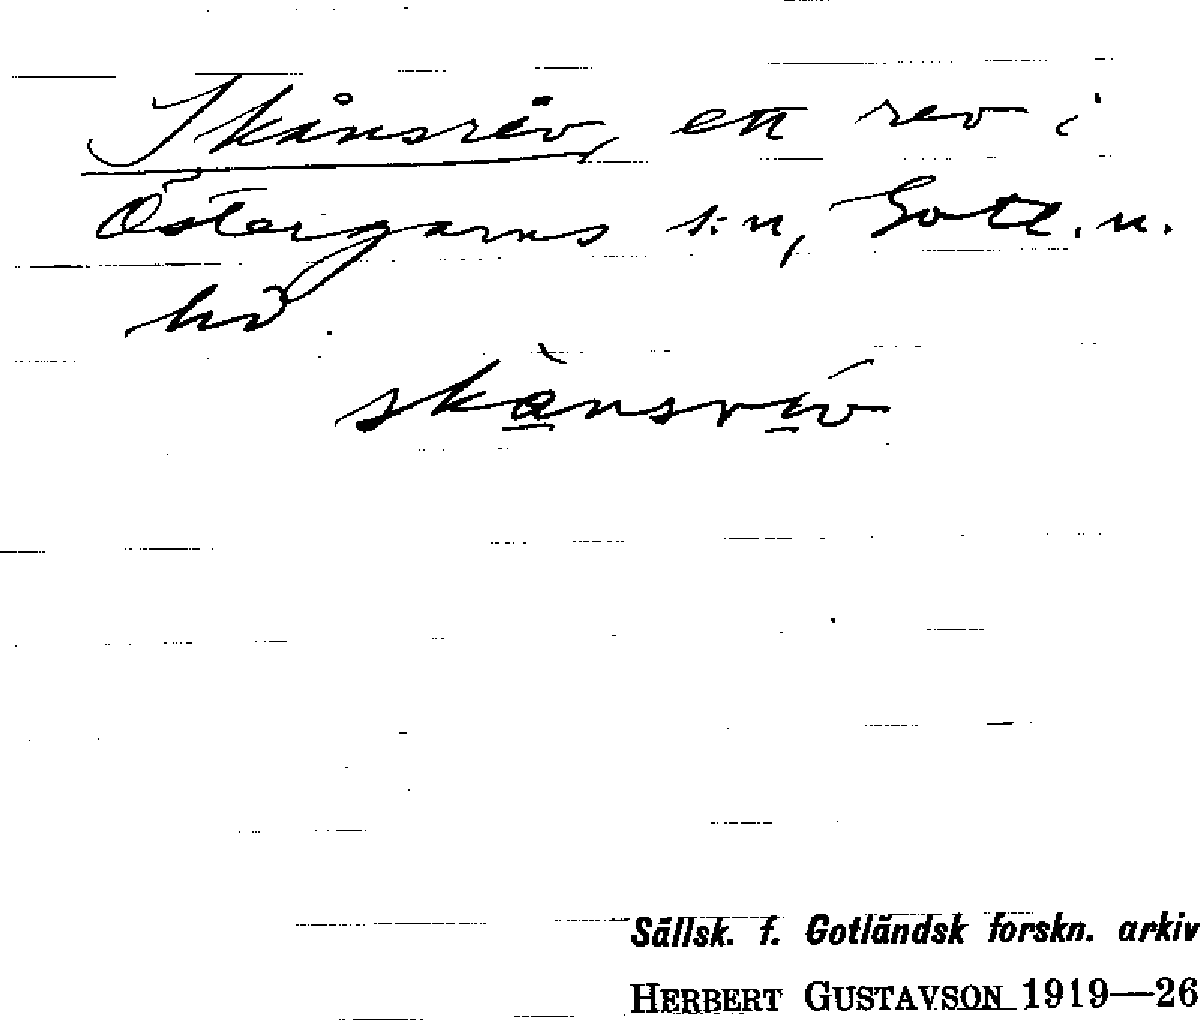 Skånsrev, ett rev i
Östergarns s:n, Gotl. n.
hd.
skånsrev
Sällsk. f. Gotländsk forskn. arkiv
HERBERT GUSTAVSON 1919—26